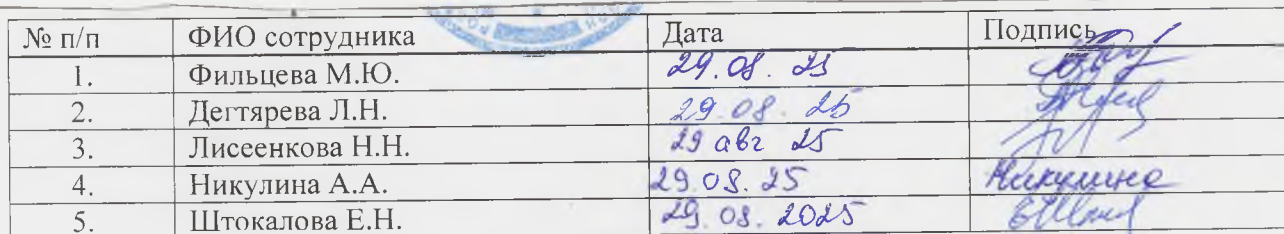 № п/п ФИО сотрудника Дата Подпись
1. Фильцева М.Ю. 29.08.25
2. Дегтярева Л.Н. 29.08.25
3. Лисеенкова Н.Н. 29 авг 25
4. Никулина А.А. 29.08.25 Никулина
5. Штокалова Е.Н. 29.08.2025